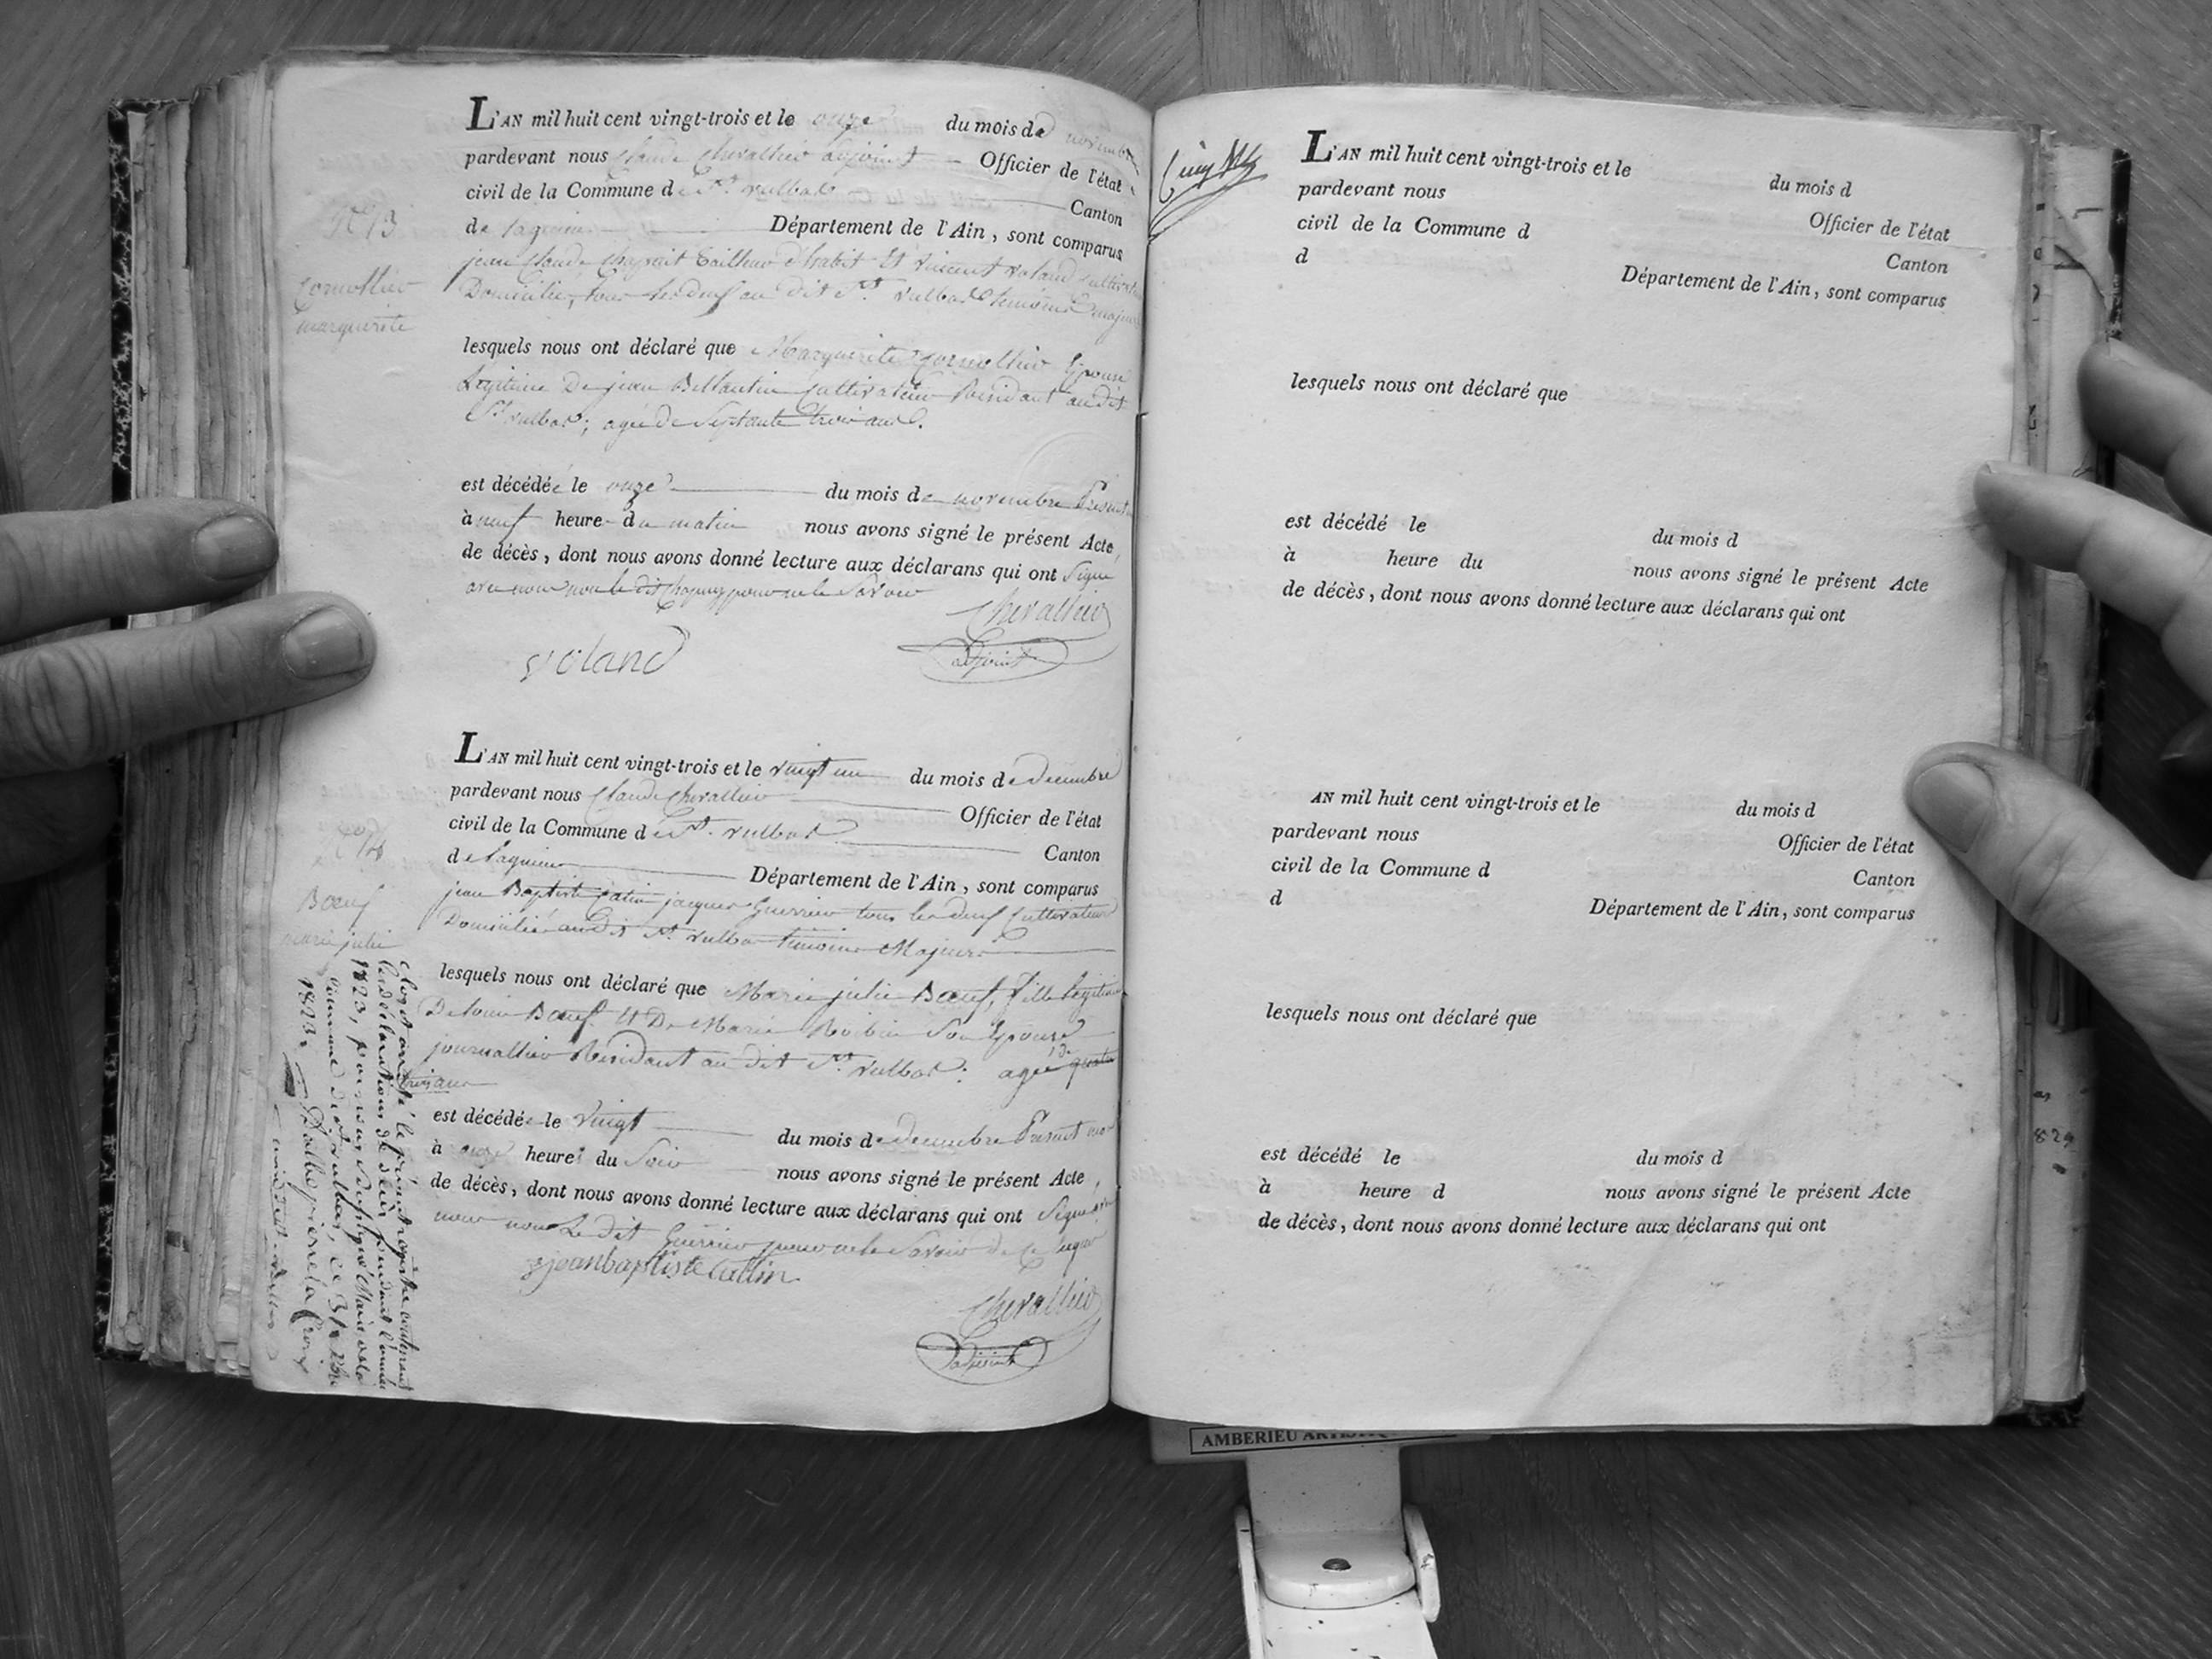 L'AN mil huit cent vingt-trois et le onze du mois de novembre
pardevant nous Claude Chevallier adjoint Officier de l'état
civil de la Commune de St. vulbas Canton
de lagnieu Département de l'Ain, sont comparus
jean Claude tailleur d'habit Et vincent voland cultivateur
Domicilie, tous les deuf au dit St. vulbas témoins majeurs
N° 13
Cornollier
marguerite
lesquels nous ont déclaré que Marguerite Cornollier Epouse
légitime De jean Bellantin Cultivateur Résidant au dit
St. vulbas; agée de Septante trois ans.
est décédée le onze du mois de novembre Présent
à neuf heure du matin nous avons signé le présent Acte,
de décès, dont nous avons donné lecture aux déclarans qui ont Signé
avec nous non le dit pour ne le Savoir
Chevallier
voland
adjoint
L'AN mil huit cent vingt-trois et le vingt un du mois de decembre
pardevant nous Claude Chevallier Officier de l'état
civil de la Commune de St. vulbas Canton
de lagnieu Département de l'Ain, sont comparus
jean Baptiste Catin jacques Guerrier tous les deuf Cultivateurs
Domicilié au dit St. vulbas témoins Majeurs
N° 14
Bœuf
marie julie
lesquels nous ont déclaré que Marie julie Bœuf, fille légitime
De Bœuf Et De Marie Robin Son Epouse
journallier Résidant au dit St. vulbas: agée de quatre
trois ans
est décédée le vingt du mois de decembre Présent mois
à onze heures du Soir nous avons signé le présent Acte,
de décès, dont nous avons donné lecture aux déclarans qui ont Signé avec
nous non Le dit Guerrier pour ne le Savoir de ce requis
jean baptiste Cattin
Chevallier
adjoint
Clos et arrêté le présent registre contenant
les déclarations de décès pendant l'année
1823, par nous Maire de la
Commune de St vulbas, ce 31 Xbre
1823.
L'AN mil huit cent vingt-trois et le du mois d
pardevant nous Officier de l'état
civil de la Commune d Canton
d Département de l'Ain, sont comparus
lesquels nous ont déclaré que
est décédé le du mois d
à heure du nous avons signé le présent Acte
de décès, dont nous avons donné lecture aux déclarans qui ont
AN mil huit cent vingt-trois et le du mois d
pardevant nous Officier de l'état
civil de la Commune d Canton
d Département de l'Ain, sont comparus
lesquels nous ont déclaré que
est décédé le du mois d
à heure d nous avons signé le présent Acte
de décès, dont nous avons donné lecture aux déclarans qui ont
829
AMBERIEU